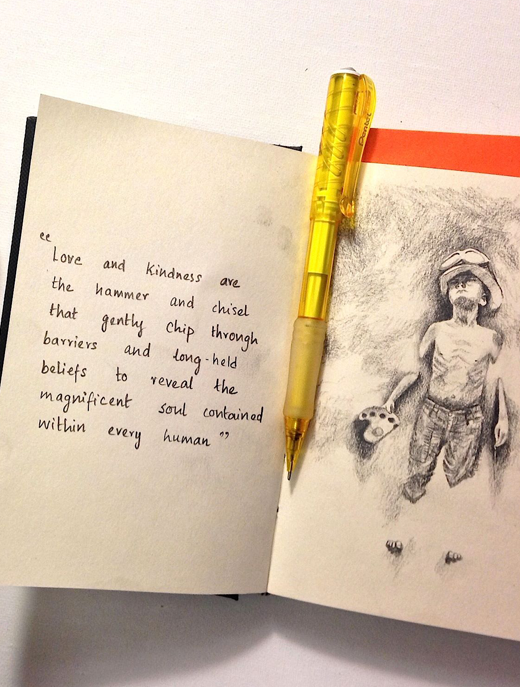 “
Love and kindness are
the hammer and chisel
that gently chip through
barriers and long-held
beliefs to reveal the
magnificent soul contained
within every human ”
Pentel